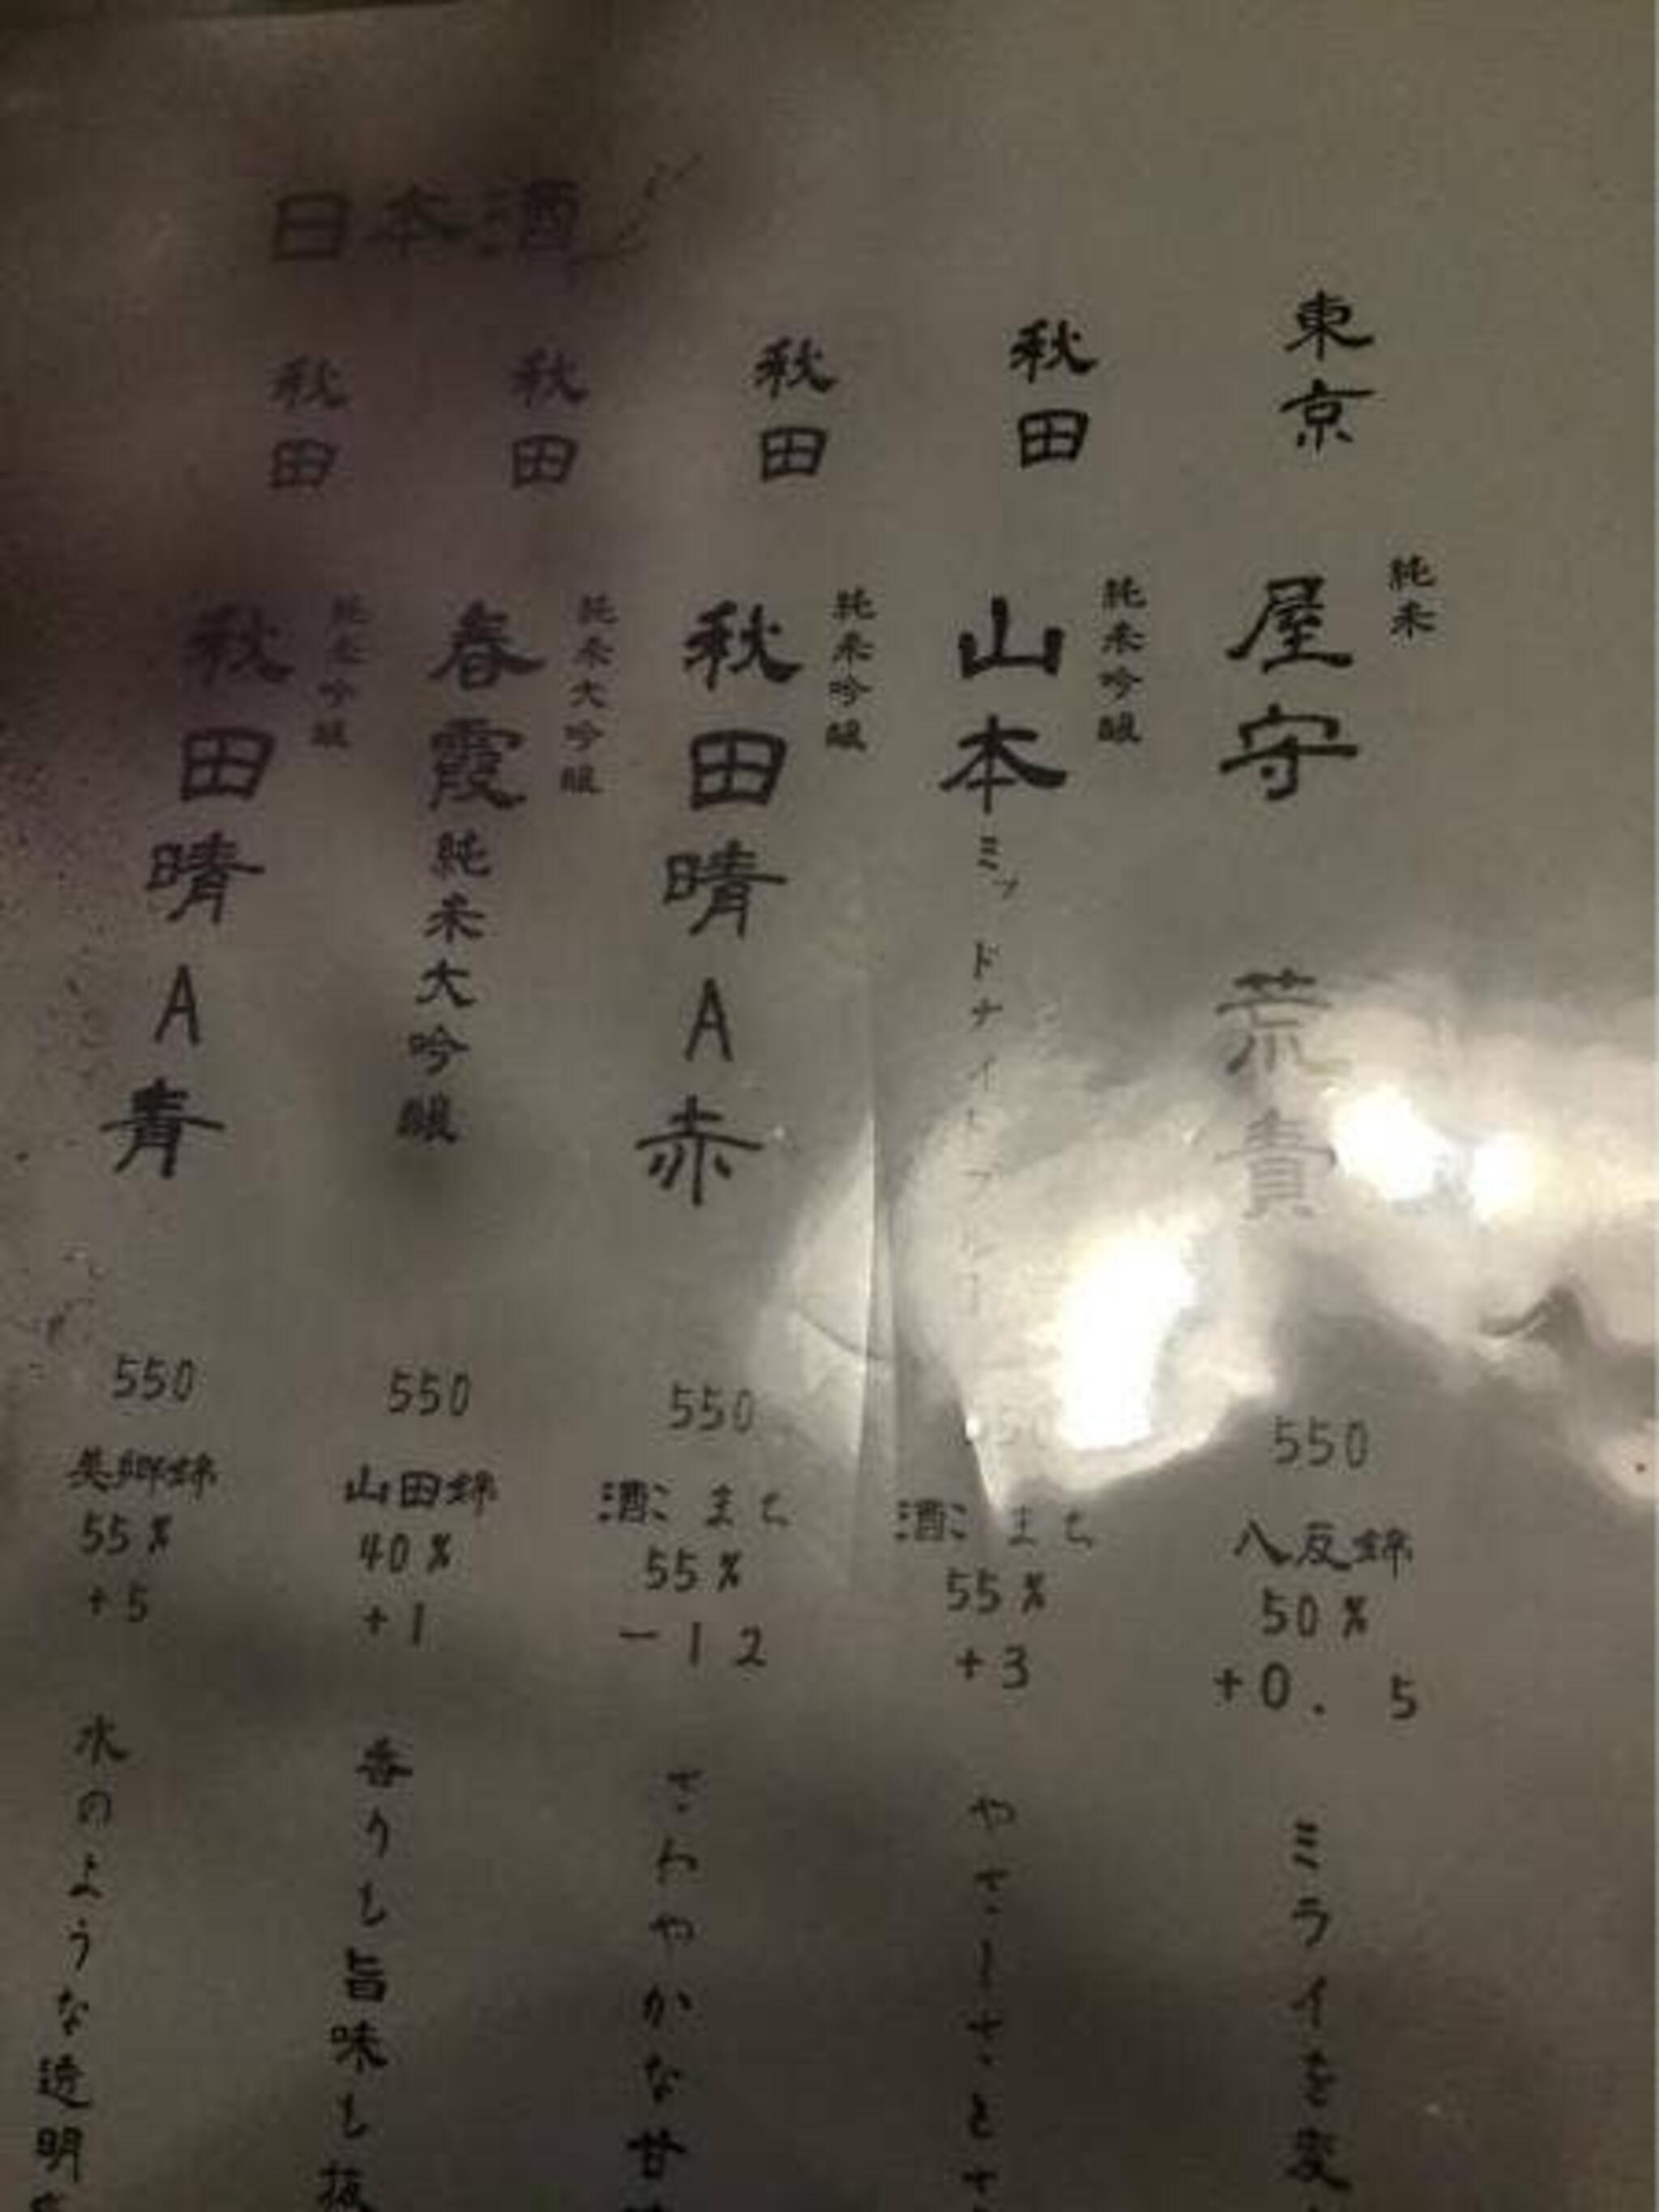 日本酒
東京
純米
屋守
荒責
550
八反錦
50%
+0.5
ミライを変
秋田
純米吟醸
山本
ミッドナイトブルー
酒こまち
55%
+3
やさしさと
秋田
純米吟醸
秋田晴A赤
550
酒こまち
55%
-12
さわやかな甘
秋田
純米大吟醸
春霞
純米大吟醸
550
山田錦
40%
+1
香りも旨味も抜
秋田
純米吟醸
秋田晴A青
550
美郷錦
55%
+5
水のような透明